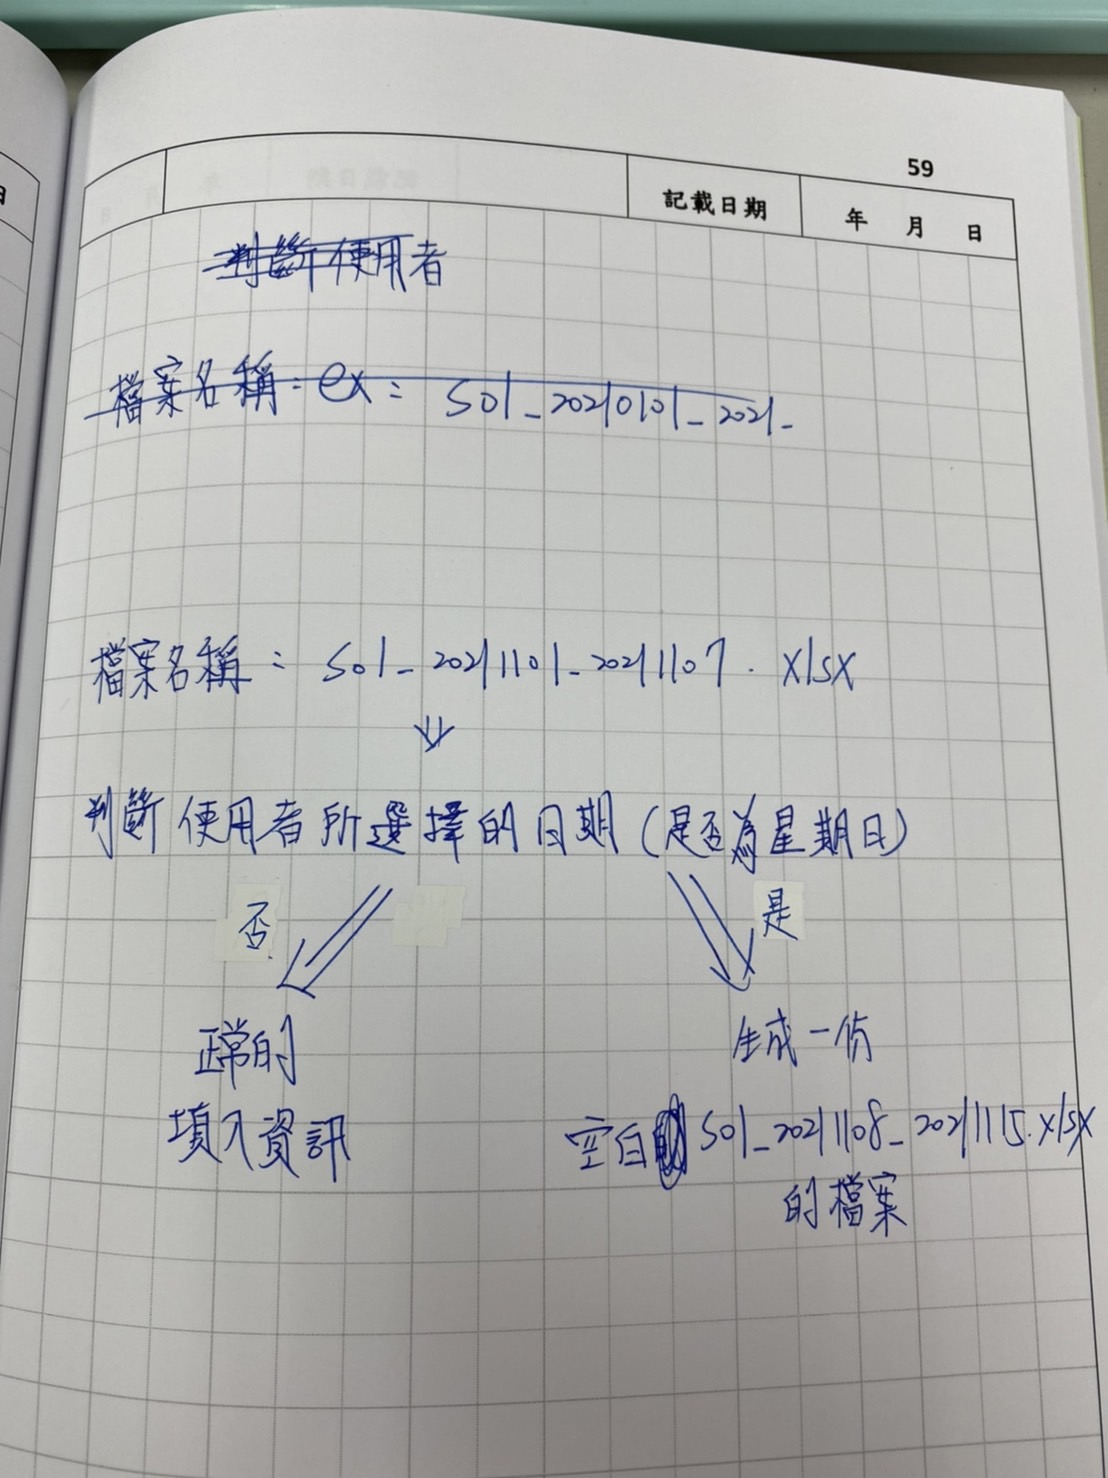 59
記載日期 年 月 日
判斷使用者
檔案名稱：ex： S01_20210101_2021_
檔案名稱： S01_20211101_20211107.xlsx
判斷使用者所選擇的日期(是否為星期日)
否 是
正常的
填入資訊
生成一份
空白 S01_20211108_20211115.xlsx
的檔案